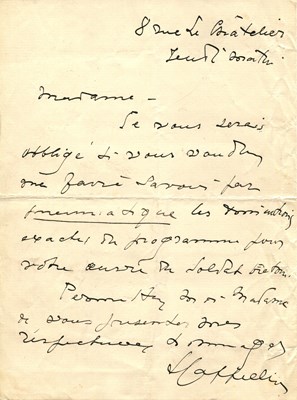 8 rue Le Châtelier
Jeudi matin
Madame -
Je vous serais
obligé si vous vouliez
me faire savoir par
pneumatique les
exactes du programme pour
votre œuvre du Soldat
Permettez moi Madame
de vous présenter mes
respectueux hommages